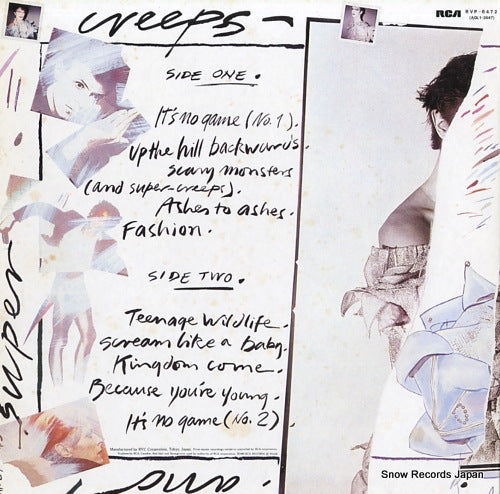 creeps -
RCA RVP-6472
SIDE ONE.
It's no game (No. 1).
up the hill backwards.
scary monsters
(and super-creeps).
Ashes to ashes.
Fashion.
SIDE TWO.
Teenage wildlife.
scream like a baby.
Kingdom come.
Because you're young.
It's no game (No. 2)
super
Manufactured by RVC Corporation, Tokyo, Japan.
Snow Records Japan